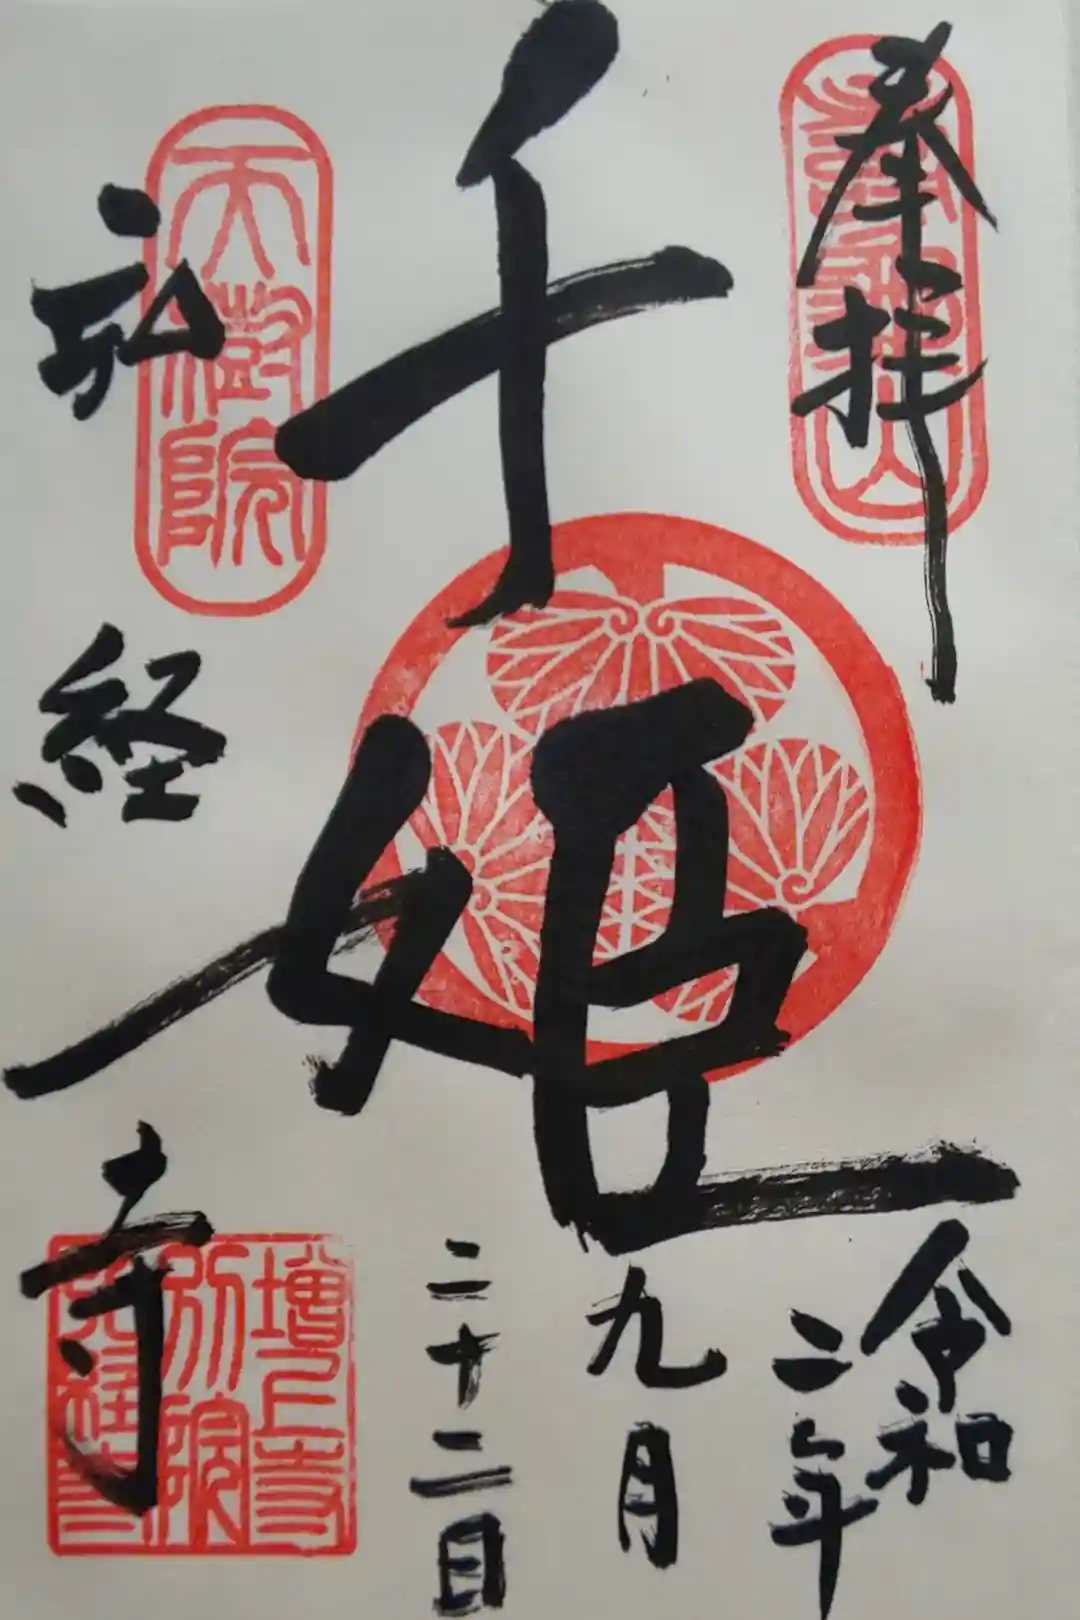 奉拝
千姫
弘経寺
令和二年
九月
二十二日
天樹院
増上寺
別院
弘経寺